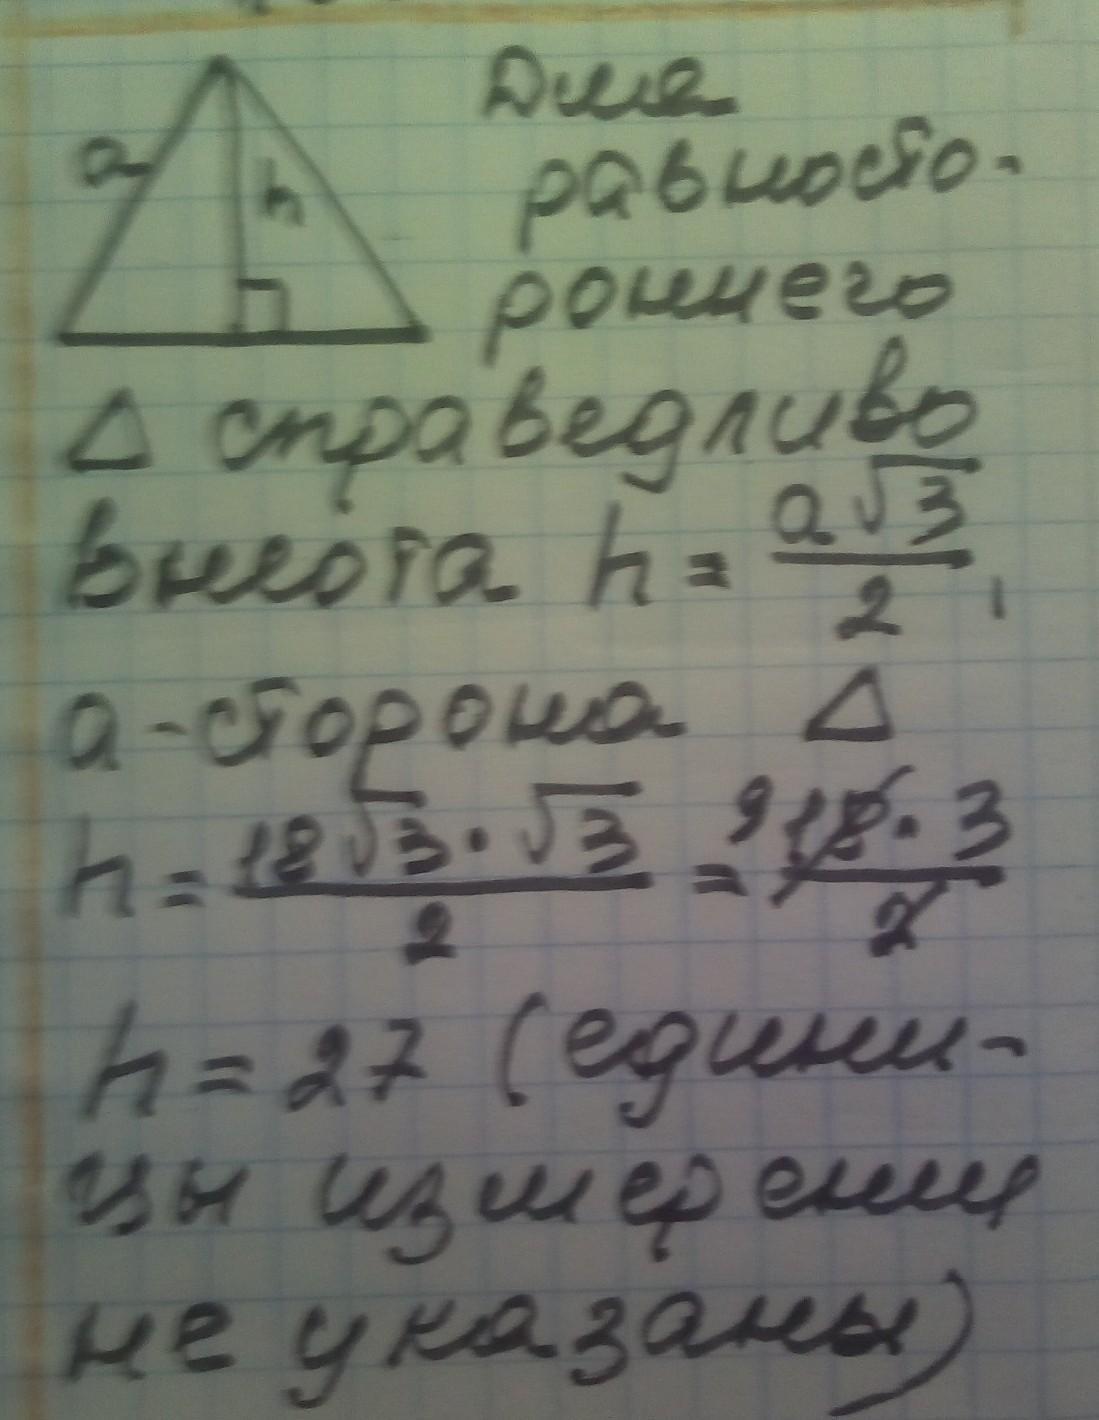 a
h
Для
равносто-
роннего
Δ справедливо
высота h = a√3/2,
a - сторона Δ
h = 18√3 · √3 / 2 = 9 18 · 3 / 2
h = 27 (едини-
цы измерения
не указаны)